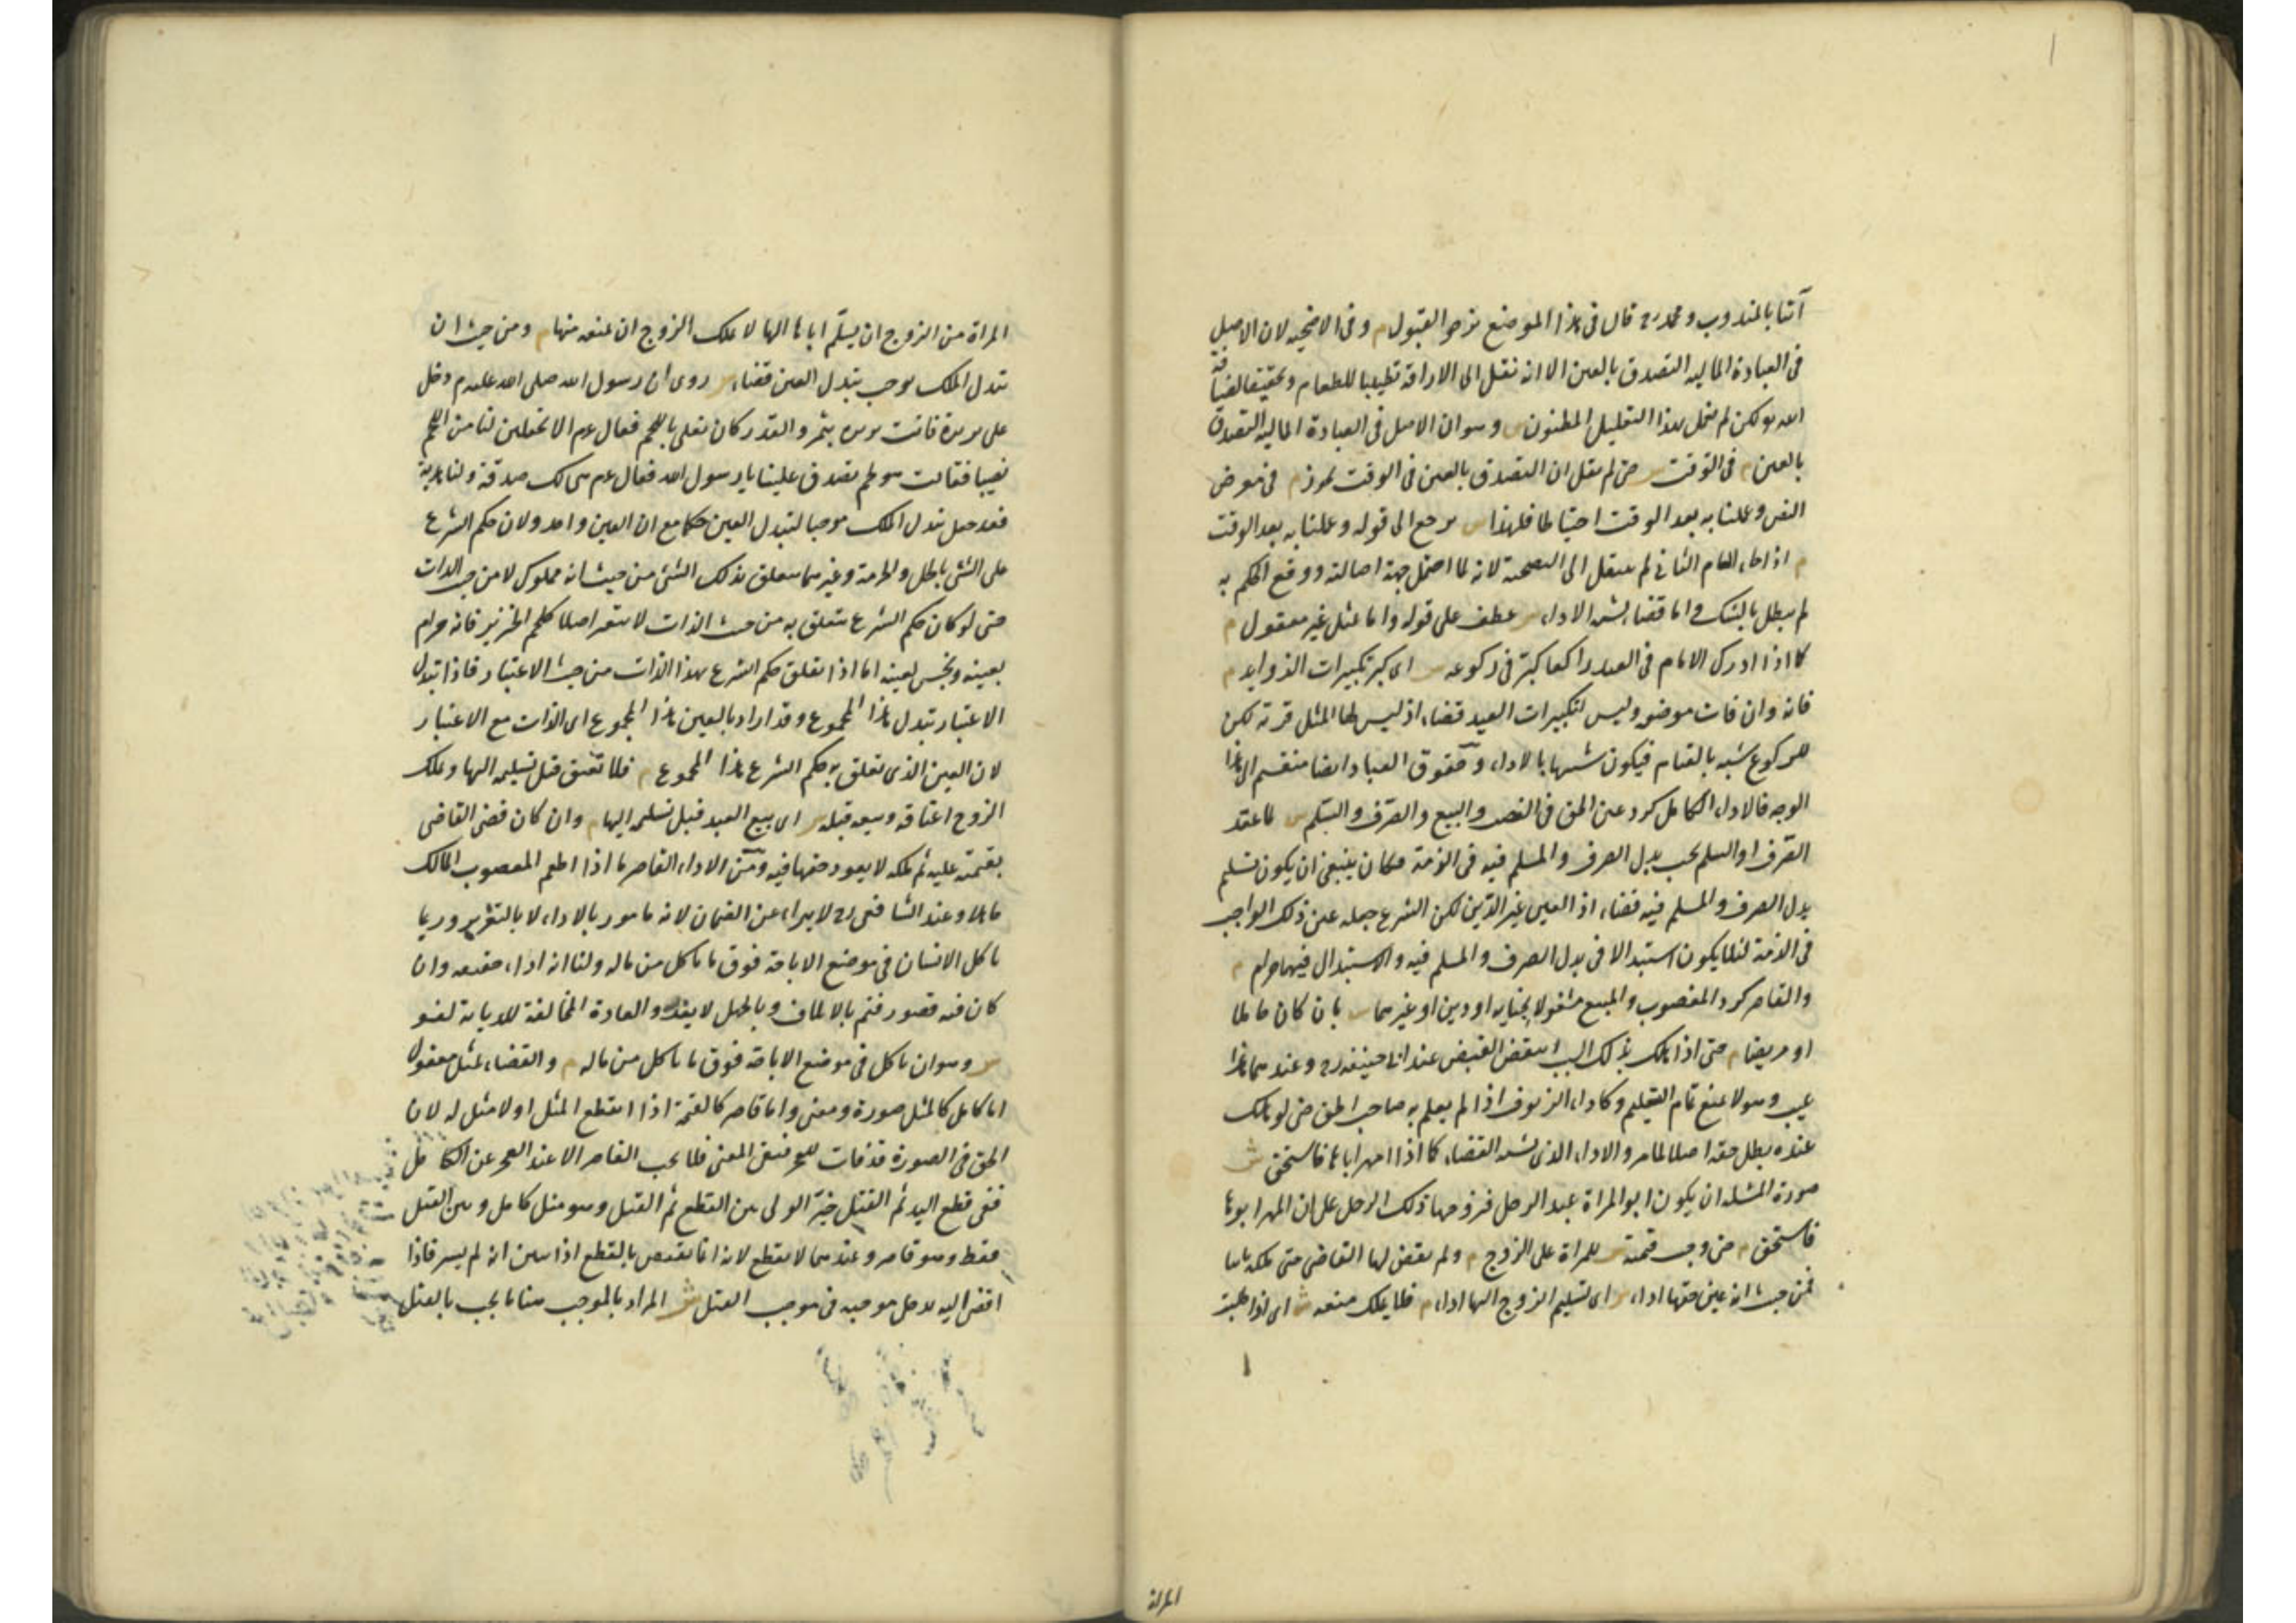 آتيا بالمندوب ومحمد رح قال في هذا الموضع نرجو القبول م وفي الاضحية لان الاصل
في العبادة المالية التصدق بالعين الا انه نقل الى الاراقة تطييبا للطعام وتحقيقا لضيافة
الله لكن لم نعمل بهذا التعليل المظنون س وهو ان الاصل في العبادة المالية التصدق
بالعين م في الوقت س حتى لم نقل ان التصدق بالعين في الوقت يجوز م في معرض
النص وعملنا به بعد الوقت احتياطا فلهذا س يرجع الى قوله وعملنا به بعد الوقت
م اذا جاء العام الثاني لم ينتقل الى التضحية لانه لما احتمل جهة اصالته ووقع الحكم به
لم يبطل بالشك واما قضاء يشبه الاداء س عطف على قوله واما بمثل غير معقول م
كما اذا ادرك الامام في العيد راكعا كبر في ركوعه س اى كبر تكبيرات الزوايد م
فانه وان فات موضعه وليس لتكبيرات العيد قضاء اذ ليس لها المثل قربة لكن
للركوع شبه بالقيام فيكون شبيها بالاداء وحقوق العباد ايضا منقسم الى هذا
الوجه فالاداء الكامل كرد عين الحق في الغصب والبيع والصرف والسلم س لما عقد
الصرف او السلم يجب بدل الصرف والمسلم فيه في الذمة فكان ينبغي ان يكون تسليم
بدل الصرف والمسلم فيه قضاء اذ العين غير الدين لكن الشرع جعله عين ذلك الواجب
في الذمة لئلا يكون استبدالا في بدل الصرف والمسلم فيه والاستبدال فيهما حرام م
والقاصر كرد المغصوب والمبيع مشغولا بجناية او دين او غيرهما س بان كان حاملا
او مريضا م حتى اذا هلك بذلك السبب انتقض القبض عند ابي حنيفة رح وعندهما هذا
عيب وهو لا يمنع تمام التسليم وكاداء الزيوف اذا لم يعلم به صاحب الحق حتى لو هلك
عنده بطل حقه اصلا لما مر والاداء الذي يشبه القضاء كما اذا امهر اباها فاستحق ش
صورة المسئلة ان يكون ابو المراة عبد الرجل فزوجها ذلك الرجل على ان المهر ابوها
فاستحق م حتى وجب قيمته س للمراة على الزوج م ولم يقض لها القاضي حتى ملكه ثانيا
فمن حيث انه عين حقها اداء س اى تسليم الزوج اليها اداء م فلا يملك منعه ش اى اذا طلبت
المراة
المراة من الزوج ان يسلم اباها اليها لا يملك الزوج ان يمنعه منها م ومن حيث ان
تبدل الملك يوجب تبدل العين قضاء س روى ان رسول الله صلى الله عليه م دخل
على بريرة فاتت بريرة بتمر والقدر كان يغلى باللحم فقال عم الا تجعلين لنا من اللحم
نصيبا فقالت هو لحم تصدق علينا يا رسول الله فقال عم هى لك صدقة ولنا هدية
فقد جعل تبدل الملك موجبا لتبدل العين حكما مع ان العين واحد ولان حكم الشرع
على الشئ بالحل والحرمة وغيرهما يتعلق بذلك الشئ من حيث انه مملوك لا من حيث الذات
حتى لو كان حكم الشرع يتعلق به من حيث الذات لا يتغير اصلا كلحم الخنزير فانه حرام
بعينه ونجس لعينه اما اذا تعلق حكم الشرع بهذا الذات من حيث الاعتبار فاذا تبدل
الاعتبار تبدل هذا المجموع وقد اراد بالعين هذا المجموع اى الذات مع الاعتبار
لان العين الذى تعلق به حكم الشرع هذا المجموع م فلا تعتق قبل تسليمه اليها ويملك
الزوج اعتاقه وبيعه قبله س اى بيع العبد قبل تسليمه اليها م وان كان قضى القاضى
بقيمته عليه ثم ملكه لا يعود حقها فيه ومن الاداء القاصر ما اذا اطعم المغصوب المالك
جاهلا وعند الشافعى رح لا يبراء عن الضمان لانه مامور بالاداء لا بالتغرير وربما
ياكل الانسان في موضع الاباحة فوق ما ياكل من ماله ولنا انه اداء حقيقة وان
كان فيه قصور فتم بالاتلاف وبالجهل لا يعذر والعادة المخالفة للديانة لغو
س وهو ان ياكل في موضع الاباحة فوق ما ياكل من ماله م والقضاء بمثل معقول
اما كامل كالمثل صورة ومعنى واما قاصر كالقيمة اذا انقطع المثل او لا مثل له لان
الحق في الصورة قد فات للعجز فبقى المعنى فلا يجب القاصر الا عند العجز عن الكامل
ففى قطع اليد ثم القتل خير الولى بين القطع ثم القتل وهو مثل كامل وبين القتل
فقط وهو قاصر وعندهما لا يقطع لانه انما يقتص بالقطع اذا تبين انه لم يسر فاذا
افضى اليه يدخل موجبه في موجب القتل ش المراد بالموجب هنا ما يجب بالقتل